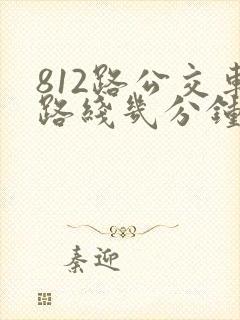 812路公交車
路綫幾分鐘
秦迎